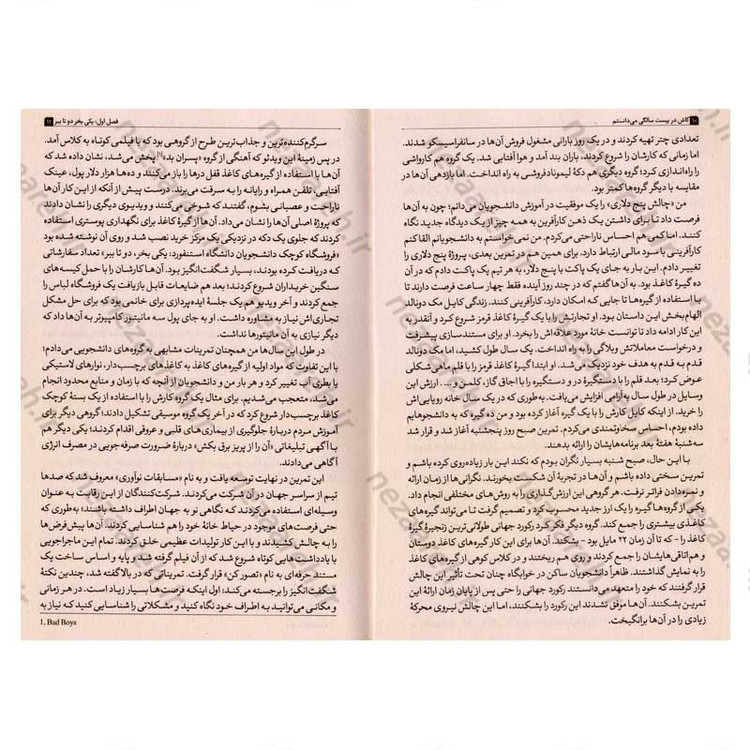 ۱۰ کاش در بیست سالگی می‌دانستم
تعدادی چتر تهیه کردند و در یک روز بارانی مشغول فروش آن‌ها در سانفرانسیسکو شدند.
اما زمانی که کارشان را شروع کردند، باران بند آمد و هوا آفتابی شد. یک گروه هم کارواشی
را راه‌اندازی کردند؛ گروه دیگری هم دکهٔ لیمونادفروشی به راه انداخت. اما بازدهی آن‌ها در
مقایسه با دیگر گروه‌ها کمتر بود.
من «چالش پنج دلاری» را یک موفقیت در آموزش دانشجویان می‌دانم؛ چون به آن‌ها
فرصت داد تا برای داشتن یک ذهن کارآفرین به همه چیز از یک دیدگاه جدید نگاه
کنند. اما کمی هم احساس ناراحتی می‌کردم. من نمی خواستم به دانشجویانم القا کنم
کارآفرینی با سود مالی ارتباط دارد. برای همین هم در تمرین بعدی، پروژهٔ پنج دلاری را
تغییر دادم. این بار به جای یک پاکت با پنج دلار، به هر تیم یک پاکت دادم که در آن
ده گیرهٔ کاغذ بود. به آن‌ها گفتم که در چند روز آینده فقط چهار ساعت فرصت دارند تا
با استفاده از گیره‌ها تا جایی که امکان دارد، کارآفرینی کنند. زندگی کایل مک دونالد
الهام‌بخش این داستان بود. او تجارتش را با یک گیرهٔ کاغذ قرمز شروع کرد و آنقدر به
این کار ادامه داد تا توانست خانهٔ مورد علاقه‌اش را بخرد. او برای مستندسازی پیشرفت
و درخواست معاملاتش وبلاگی را به راه انداخت. یک سال طول کشید، اما مک دونالد
قدم به قدم به هدف خود نزدیک می‌شد. او ابتدا گیرهٔ کاغذ قرمز را با قلم ماهی شکلی
عوض کرد؛ بعد قلم را با دستگیرهٔ در و دستگیره را با اجاق گاز، کلمن و... . ارزش این
وسایل در طول سال به آرامی افزایش می‌یافت. به‌طوری که در یک سال خانه رویایی‌اش
را خرید. از اینکه کایل کارش را با یک گیره آغاز کرده بود و من ده گیره به دانشجوهایم
داده بودم، احساس سخاوتمندی می‌کردم. تمرین صبح روز پنجشنبه آغاز شد و قرار شد
سه‌شنبهٔ هفتهٔ بعد برنامه‌هایشان را ارائه بدهند.
با این حال، صبح شنبه بسیار نگران بودم که نکند این بار زیاده‌روی کرده باشم و
تمرین سختی داده باشم و آن‌ها در تجربهٔ آن شکست بخورند. نگرانی‌ها از زمان ارائه
و نمره‌دادن فراتر نرفت. هر گروهی این ارزش‌گذاری را به روش‌های مختلفی انجام داد.
یکی از گروه‌ها گیره را یک ارز جدید محسوب کرد و تصمیم گرفت تا می‌تواند گیره‌های
کاغذی بیشتری را جمع کند. گروه دیگر فکر کرد رکورد جهانی طولانی ترین زنجیرهٔ گیرهٔ
کاغذ را - که تا آن زمان ۲۲ مایل بود - بشکند. آن‌ها برای این کار گیره‌های کاغذ دوستان
و هم‌اتاقی‌هایشان را جمع کردند و روی هم ریختند و در کلاس کوهی از گیره‌های کاغذ
را به نمایش گذاشتند. ظاهراً دانشجویان ساکن در خوابگاه چنان تحت تأثیر این چالش
قرار گرفتند که خود را متعهد می‌دانستند رکورد جهانی را حتی پس از پایان زمان ارائهٔ این
تمرین بشکنند. آن‌ها موفق نشدند این رکورد را بشکنند، اما این چالش نیروی محرکهٔ
زیادی را در آن‌ها برانگیخت.
فصل اول: یکی بخر دو تا ببر ۱۱
سرگرم‌کننده‌ترین و جذاب‌ترین طرح از گروهی بود که با فیلمی کوتاه به کلاس آمد.
در پس زمینهٔ این ویدئو که آهنگی از گروه «پسران بد»۱ پخش می‌شد، نشان داده شد که
آن‌ها با استفاده از گیره‌های کاغذ قفل درها را باز می‌کنند و ده‌ها هزار دلار پول، عینک
آفتابی، تلفن همراه و رایانه را به سرقت می‌برند. درست پیش از آنکه از این کار آن‌ها
ناراحت و عصبانی بشوم، گفتند که شوخی می‌کنند و ویدیوی دیگری را نشان دادند که
پروژهٔ اصلی آن‌ها را نشان می‌داد. آن‌ها از گیرهٔ کاغذ برای نگهداری پوستری استفاده
کردند که جلوی یک دکه در نزدیکی یک مرکز خرید نصب شد و روی آن نوشته‌شده بود
«فروشگاه کوچک دانشجویان دانشگاه استنفورد: یکی بخر، دو تا ببر» تعداد سفارشاتی
که دریافت کرده بودند، بسیار شگفت‌انگیز بود. آن‌ها کارشان را با حمل کیسه‌های
سنگین خریداران شروع کردند؛ بعد هم ضایعات قابل بازیافت یک فروشگاه لباس را
جمع کردند و آخر ویدیو هم یک جلسهٔ ایده‌پردازی برای خانمی بود که برای حل مشکل
تجاری‌اش نیاز به مشاوره داشت. او به جای پول سه مانیتور کامپیوتر به آن‌ها داد که
دیگر نیازی به آن مانیتورها نداشت.
در طول این سال‌ها من همچنان تمرینات مشابهی به گروه‌های دانشجویی می‌دادم؛
با این تفاوت که مواد اولیه از گیره‌های کاغذ به کاغذهای برچسب‌دار، نوارهای لاستیکی
یا بطری آب تغییر کرد و هر بار من و دانشجویان از آنچه که با زمان و منابع محدود انجام
می‌شد، متعجب می‌شدیم. برای مثال یک گروه کارش را با استفاده از یک بستهٔ کوچک
کاغذ برچسب‌دار شروع کرد که در آخر یک گروه موسیقی تشکیل دادند؛ گروهی دیگر برای
آموزش مردم دربارهٔ جلوگیری از بیماری‌های قلبی و عروقی اقدام کردند؛ یکی دیگر هم
با آگهی تبلیغاتی «آن را از پریز برق بکش» دربارهٔ ضرورت صرفه‌جویی در مصرف انرژی
آگاهی می‌دادند.
این تمرین در نهایت توسعه یافت و به نام «مسابقات نوآوری» معروف شد که صدها
تیم از سراسر جهان در آن شرکت می‌کردند. شرکت‌کنندگان از این رقابت به عنوان
وسیله‌ای استفاده می‌کردند که نگاهی نو به جهان اطراف داشته باشند؛ به‌طوری که
حتی فرصت‌های موجود در حیاط خانهٔ خود را هم شناسایی کردند. آن‌ها پیش‌فرض‌ها
را به چالش کشیدند و با این کار تولیدات عظیمی خلق کردند. تمام این ماجراجویی
با یادداشت هایی کوتاه شروع شد که از آن فیلم گرفته شد و پایه و اساس ساخت یک
مستند حرفه‌ای به نام «تصور کن» قرار گرفت. تمریناتی که در بالا گفته شد، چندین نکتهٔ
شگفت‌انگیز را برجسته می‌کند: اول اینکه فرصت‌ها بسیار زیاد است. در هر زمانی
و مکانی می‌توانید به اطراف خود نگاه کنید و مشکلاتی را شناسایی کنید که نیاز به
1. Bad Boys
nezaareh.ir